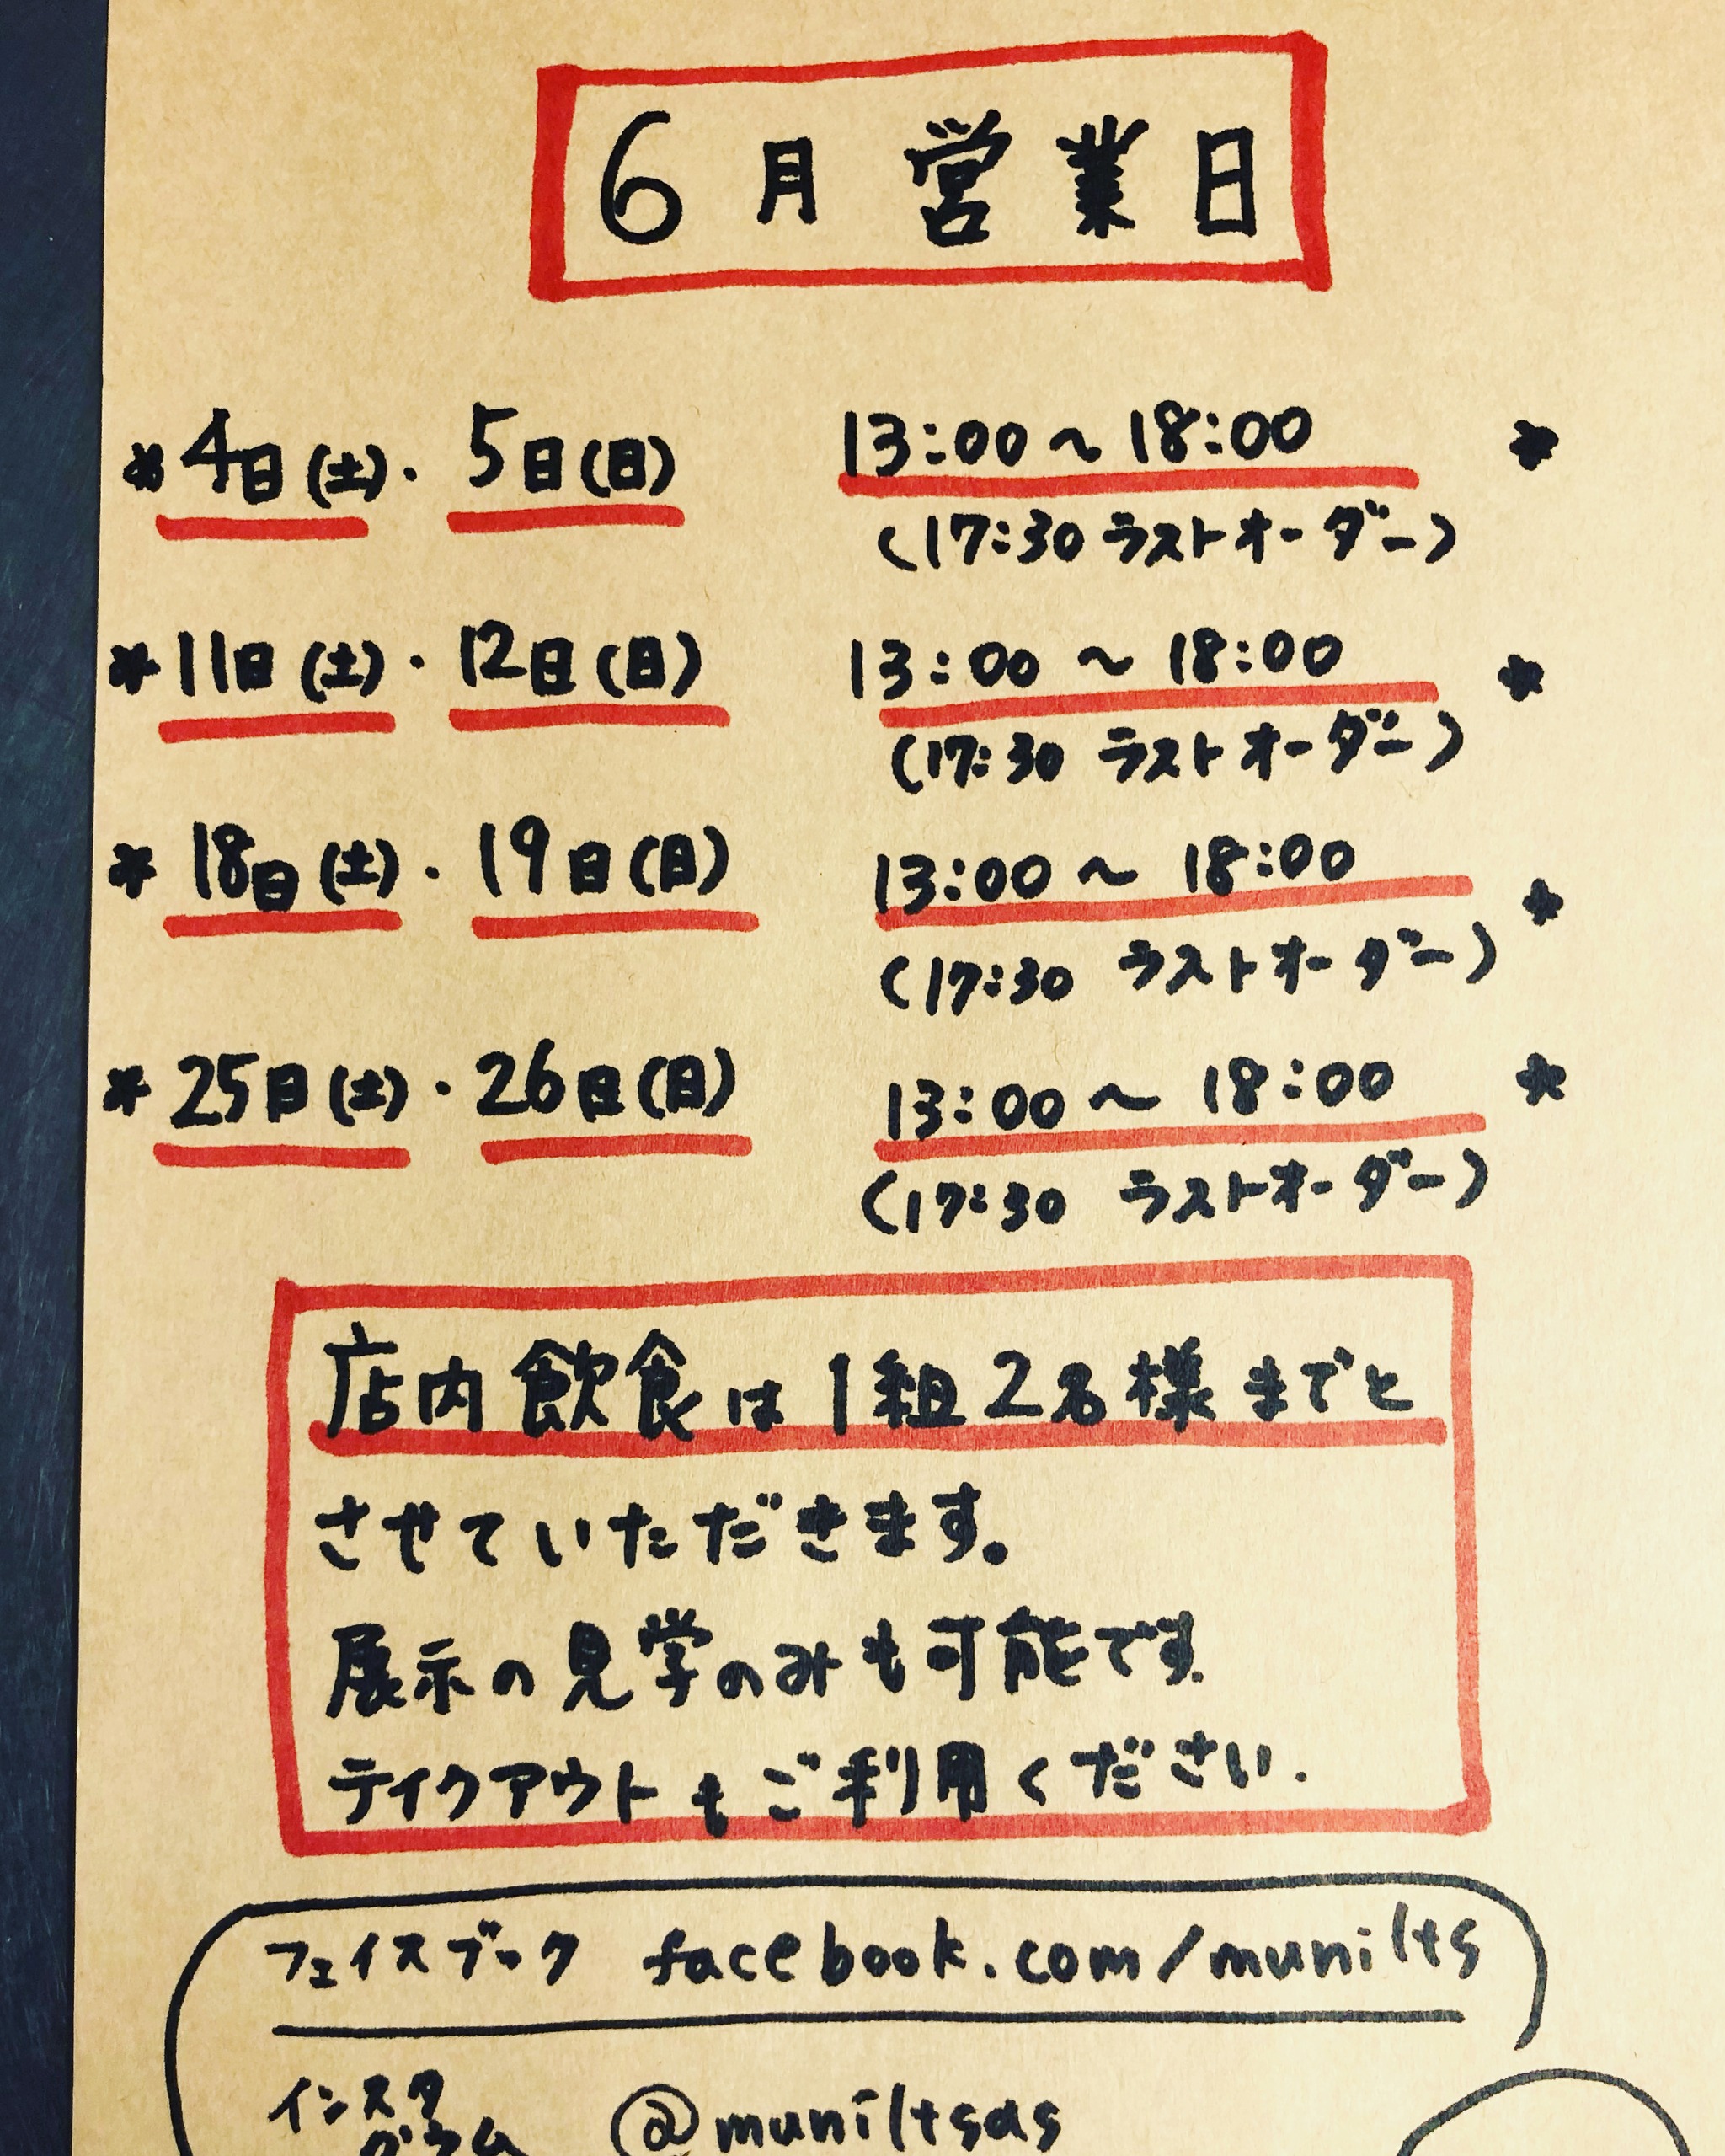 6月営業日
*4日(土)・5日(日) 13:00～18:00 *
(17:30 ラストオーダー)
*11日(土)・12日(日) 13:00～18:00 *
(17:30 ラストオーダー)
*18日(土)・19日(日) 13:00～18:00 *
(17:30 ラストオーダー)
*25日(土)・26日(日) 13:00～18:00 *
(17:30 ラストオーダー)
店内飲食は1組2名様までと
させていただきます。
展示の見学のみも可能です.
テイクアウトもご利用ください.
フェイスブック facebook.com/munilts
インスタ
グラム @muniltsas